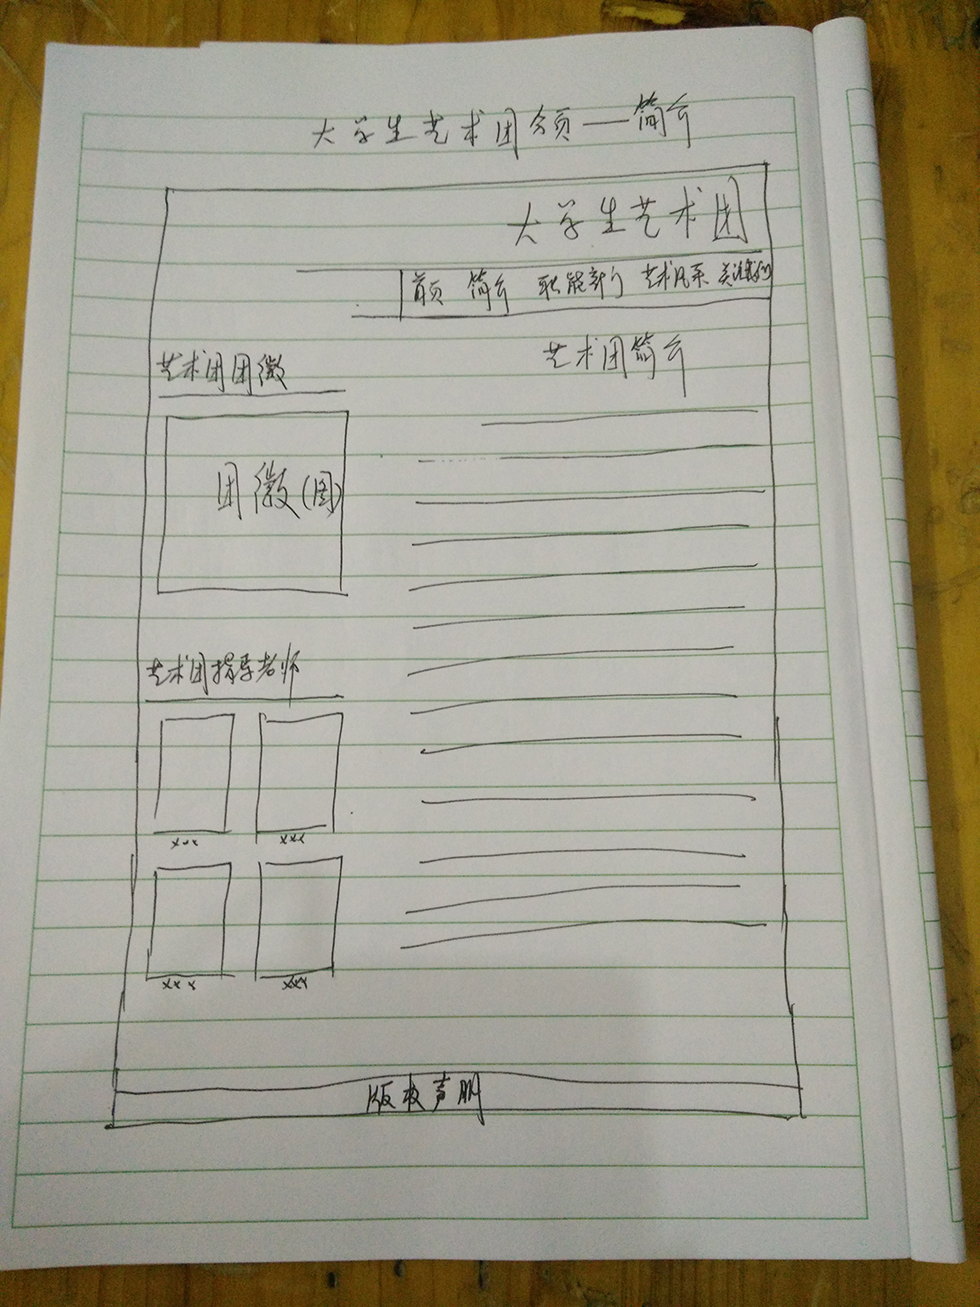 大学生艺术团 — 简介
大学生艺术团
首页 简介 职能部门 艺术风采 关注我们
艺术团简介
艺术团团徽
团徽(图)
艺术团指导老师
xxx xxx
xxx xxx
版权声明